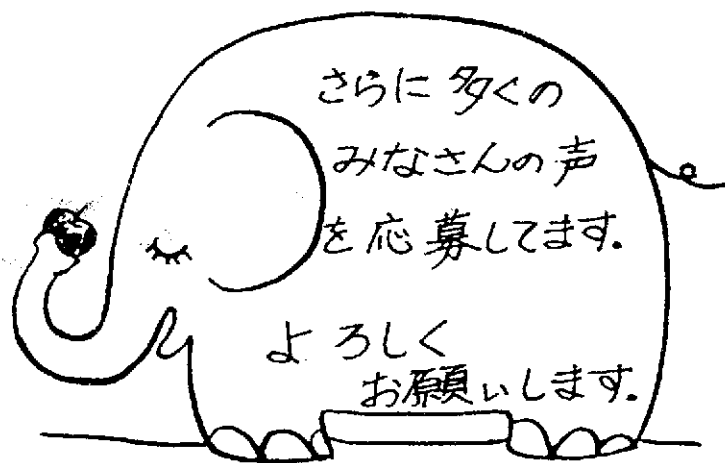 さらに多くの
みなさんの声
を応募してます.
よろしく
お願いします.